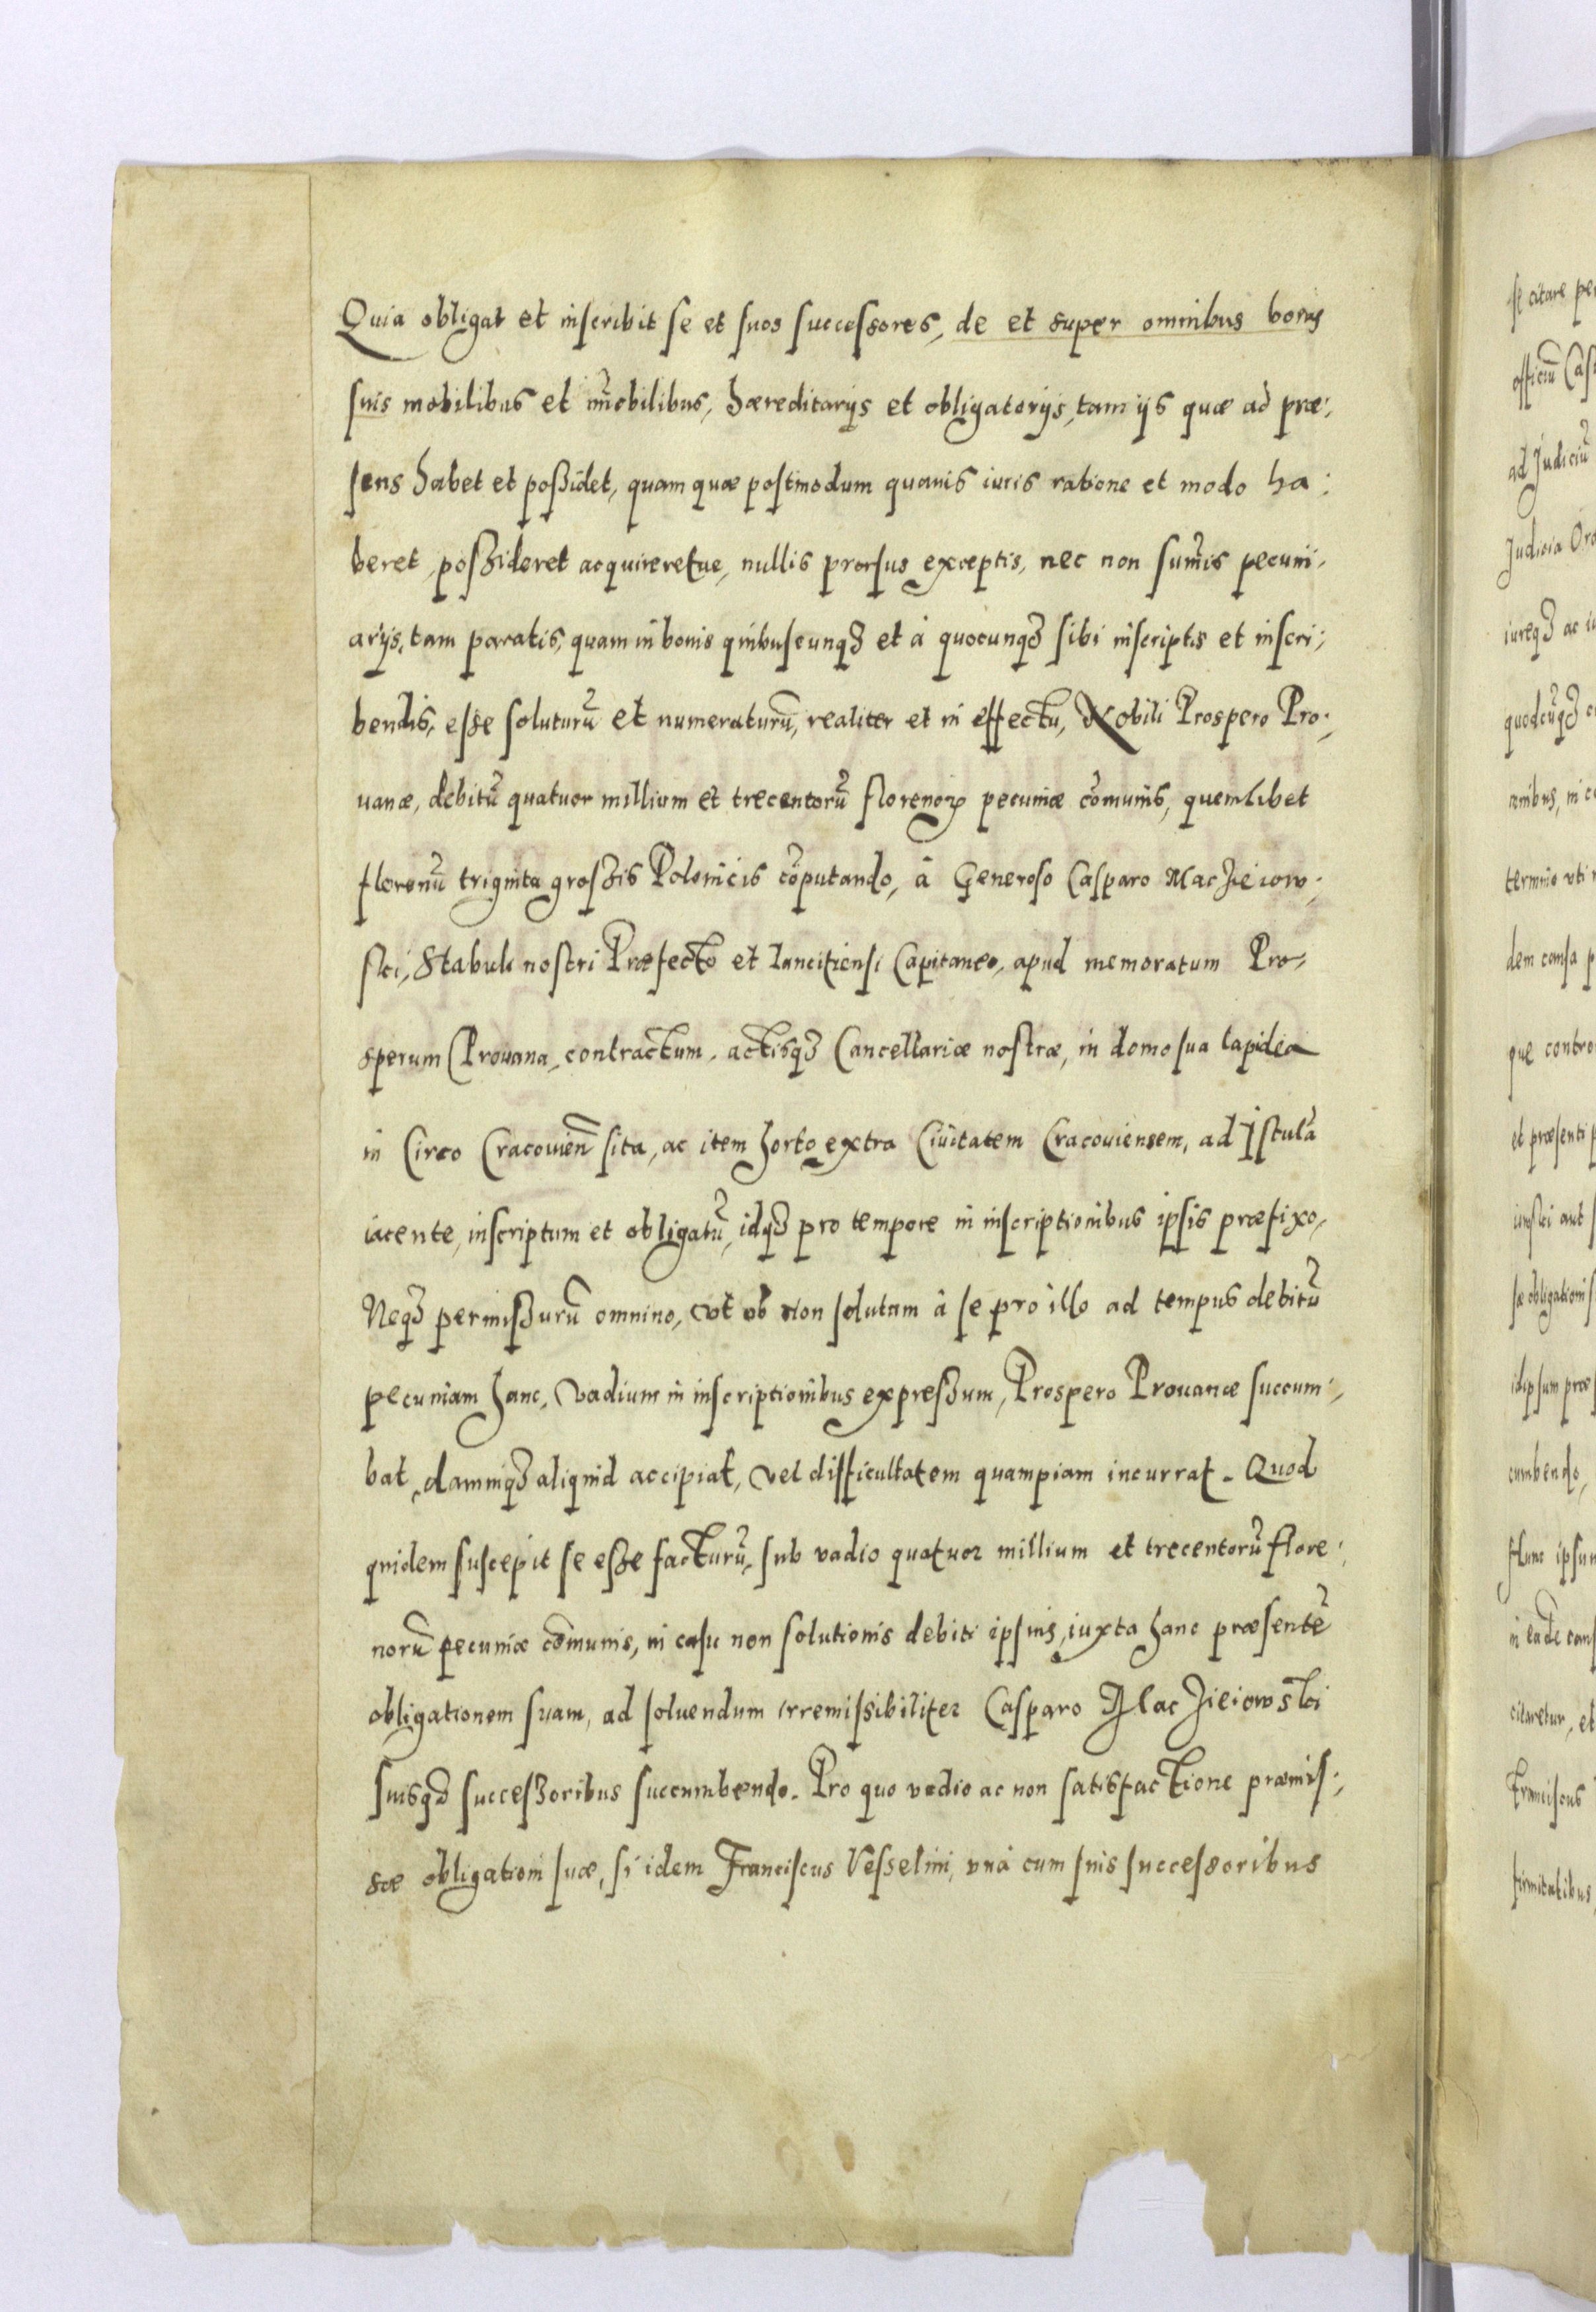 Quia obligat et inscribit se et suos successores, de et super omnibus bonis
suis mobilibus et im̃obilibus, hæreditarijs et obligatorijs, tam ijs quæ ad præ:
sens habet et poßidet, quam quæ postmodum quauis iuris ratione et modo ha:
beret, poßideret acquireretue, nullis prorsus exceptis, nec non sum̃is pecuni:
arijs, tam paratis, quam in bonis quibuscunqꝫ et à quocunqꝫ sibi inscriptis et inscri:
bendis, esse soluturũ et numeraturũ, realiter et in effectu, Nobili Prospero Pro:
uanæ, debitũ quatuor millium et trecentorũ florenoꝝ pecuniæ com̃unis, quemlibet
florenũ triginta großis Polonicis cõputando, à Generoso Casparo Macżieiow:
ski, Stabuli nostri Præfecto et Lancitiensi Capitaneo, apud memoratum Pro:
sperum Prouana, contractum, actisqꝫ Cancellariæ nostræ, in domo sua lapidea
in Circo Cracouieñ sita, ac item horto extra Ciuitatem Cracouiensem, ad Istulã
iacente, inscriptum et obligatũ, idqꝫ pro tempore in inscriptionibus ipsis præfixo,
Neqꝫ permißurũ omnino, vt ob non solutam à se pro illo ad tempus debitũ
pecuniam hanc, vadium in inscriptionibus expreßum, Prospero Prouanæ succum:
bat, damniqꝫ aliquid accipiat, vel difficultatem quampiam incurrat. Quod
quidem suscepit se eße facturũ, sub vadio quatuor millium et trecentorũ flore:
norũ pecuniæ cõmunis, in casu non solutionis debiti ipsius, iuxta hanc præsentẽ
obligationem suam, ad soluendum irremissibiliter Casparo Macżieiowski
suisqꝫ succeßoribus succumbendo. Pro quo vadio ac non satisfactione præmis:
sæ obligationi suæ, si idem Franciscus Vesselini, vnà cum suis successoribus
se citare
officiũ
ad Judiciũ
Judicia
iureqꝫ ac
quodcũqꝫ
omnibus, in
termino vti
dem causa
que contro
et præsenti
iowski aut
sæ obligationi
idipsum præ
cumbendo,
ipsum
in eadẽ
citaretur, et
Franciscus
firmitatibus